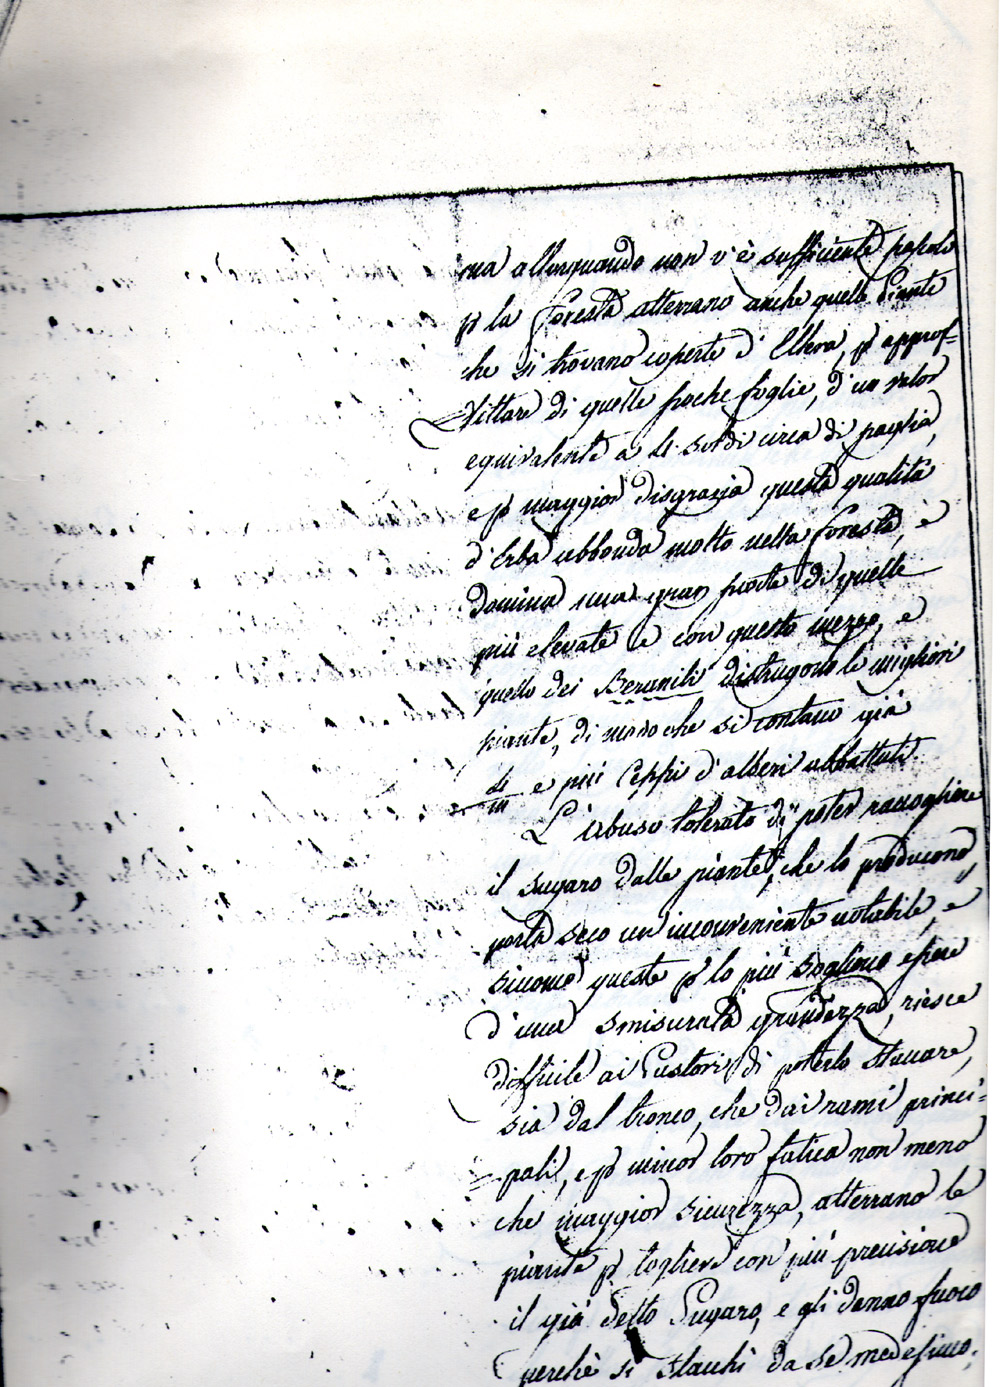 ma allorquando non v'è sufficiente pascolo
p la foresta atterrano anche quelle Piante
che si trovano coperte d'Ellera, p approf=
fittare di quelle poche foglie, d'un valor
equivalente a 4 soldi circa di paglia,
e p maggior disgrazia questa qualità
d'Erba abbonda molto nella foresta, e
domina una gran parte di quelle
più elevate e con questo mezzo, e
quello dei Beranili distrugono le migliori
piante, di modo che si contano già
4/m e più Ceppi d'alberi abbattuti.
L'abuso tolerato di poter raccogliere
il sugaro dalle piante, che lo producono,
porta seco un'inconveniente notabile, e
siccome queste p lo più sogliono essere
d'una smisurata grandezza, riesce
difficile ai Pastori di poterlo staccare,
sia dal tronco, che dai rami princi=
=pali, e p minor loro fatica non meno
che maggior sicurezza, atterrano le
piante p togliere con più precisione
il già detto Sugaro, e gli danno fuoco
perchè si stacchi da se medesimo.